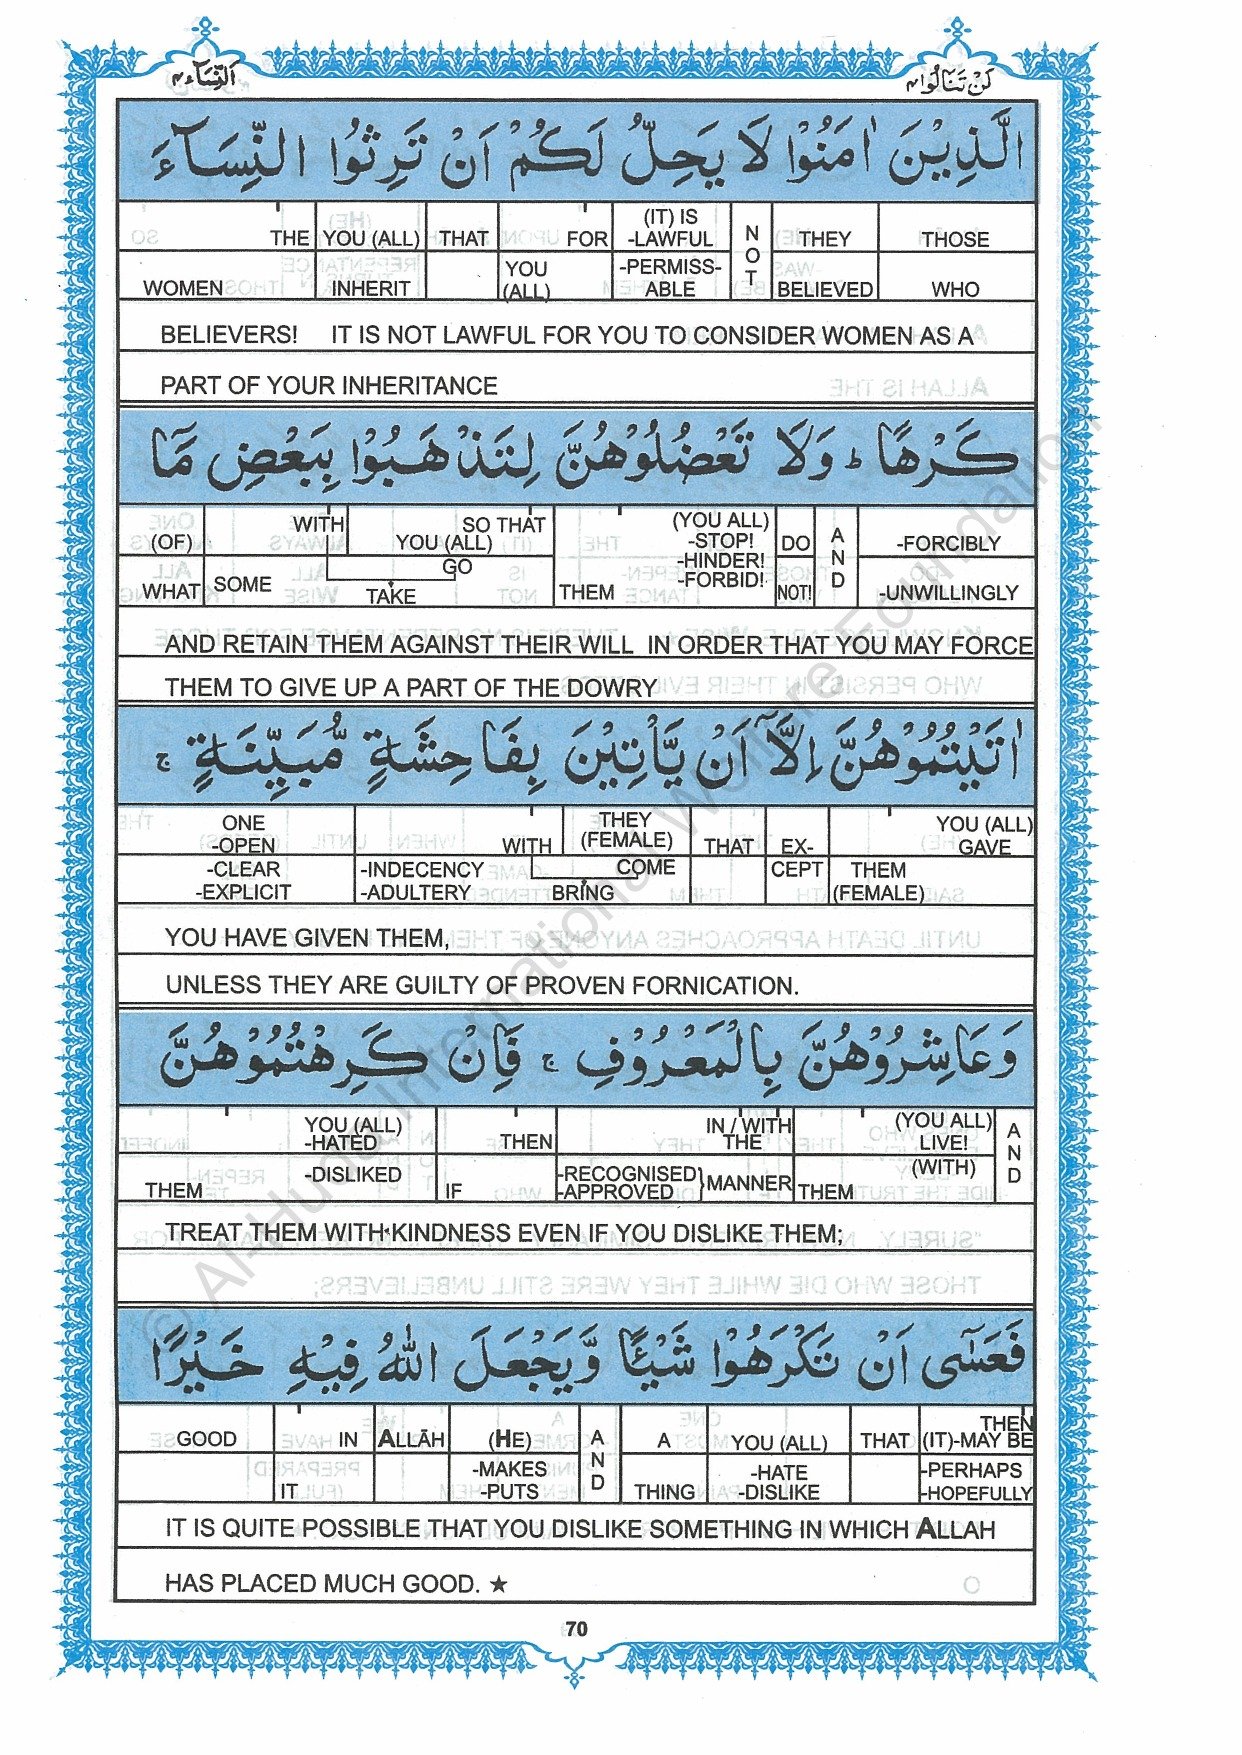 النساء ٤
لن تنالوا ٤
الَّذِيْنَ اٰمَنُوْا لَا يَحِلُّ لَكُمْ اَنْ تَرِثُوا النِّسَآءَ
THE YOU (ALL) THAT FOR (IT) IS -LAWFUL NOT THEY THOSE
WOMEN INHERIT YOU (ALL) -PERMISS-ABLE BELIEVED WHO
BELIEVERS! IT IS NOT LAWFUL FOR YOU TO CONSIDER WOMEN AS A
PART OF YOUR INHERITANCE
كَرْهًا ؕ وَلَا تَعْضُلُوْهُنَّ لِتَذْهَبُوْا بِبَعْضِ مَآ
(OF) WITH SO THAT YOU (ALL) (YOU ALL) -STOP! DO AND -FORCIBLY
WHAT SOME TAKE GO THEM -HINDER! -FORBID! NOT! -UNWILLINGLY
AND RETAIN THEM AGAINST THEIR WILL IN ORDER THAT YOU MAY FORCE
THEM TO GIVE UP A PART OF THE DOWRY
اٰتَيْتُمُوْهُنَّ اِلَّآ اَنْ يَّاْتِيْنَ بِفَاحِشَةٍ مُّبَيِّنَةٍ ۚ
ONE -OPEN WITH THEY (FEMALE) THAT EX- YOU (ALL) GAVE
-CLEAR -EXPLICIT -INDECENCY -ADULTERY BRING COME CEPT THEM (FEMALE)
YOU HAVE GIVEN THEM,
UNLESS THEY ARE GUILTY OF PROVEN FORNICATION.
وَعَاشِرُوْهُنَّ بِالْمَعْرُوْفِ ۚ فَاِنْ كَرِهْتُمُوْهُنَّ
YOU (ALL) -HATED THEN IN / WITH THE (YOU ALL) LIVE! AND
THEM -DISLIKED IF -RECOGNISED -APPROVED }MANNER THEM (WITH)
TREAT THEM WITH KINDNESS EVEN IF YOU DISLIKE THEM;
فَعَسٰٓى اَنْ تَكْرَهُوْا شَيْئًا وَّيَجْعَلَ اللّٰهُ فِيْهِ خَيْرًا
GOOD IN ALLĀH (HE) AND A YOU (ALL) THAT THEN (IT)-MAY BE
IT -MAKES -PUTS THING -HATE -DISLIKE -PERHAPS -HOPEFULLY
IT IS QUITE POSSIBLE THAT YOU DISLIKE SOMETHING IN WHICH ALLAH
HAS PLACED MUCH GOOD. ★
70
© Al-Huda International Welfare Foundation